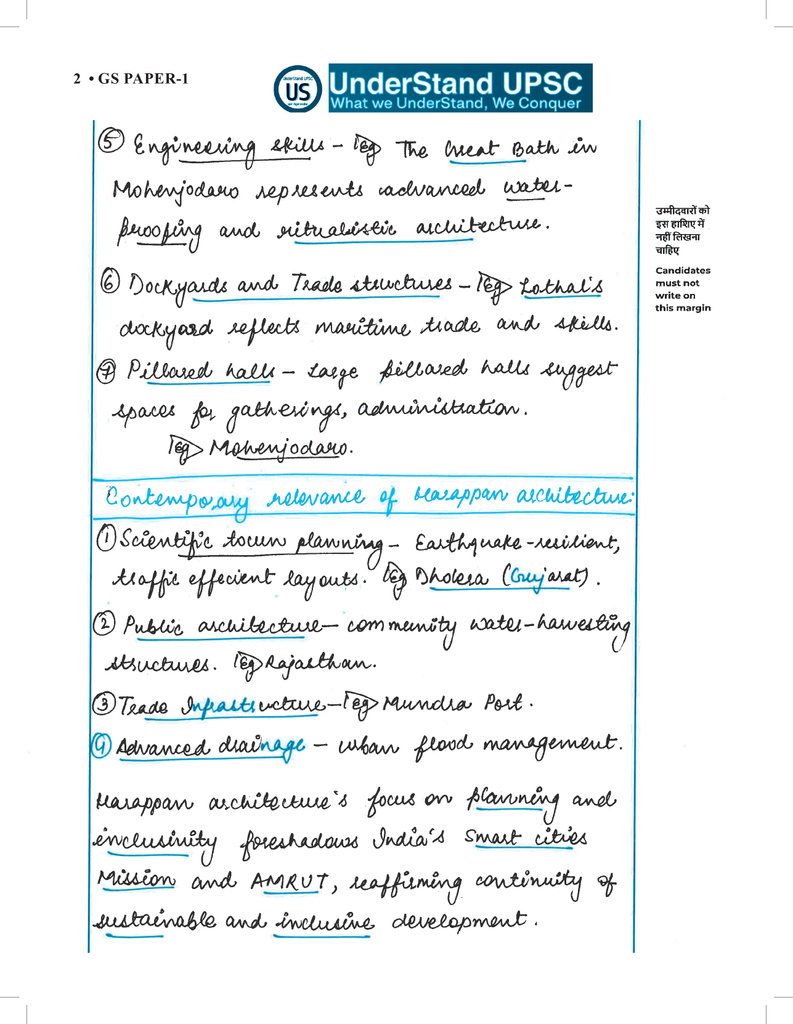 2 • GS PAPER-1
UnderStand UPSC
US
UnderStand UPSC
What we UnderStand, We Conquer
⑤ Engineering skills - Eg The Great Bath in
Mohenjodaro represents advanced water-
proofing and ritualistic architecture.
⑥ Dockyards and Trade structures - Eg Lothal's
dockyard reflects maritime trade and skills.
⑦ Pillared halls - Large pillared halls suggest
spaces for gatherings, administration.
Eg Mohenjodaro.
Contemporary relevance of Harappan architecture:
① Scientific town planning - Earthquake-resilient,
traffic effecient layouts. Eg Dholera (Gujarat).
② Public architecture - community water-harvesting
structures. Eg Rajasthan.
③ Trade Infrastructure - Eg Mundra Port.
④ Advanced drainage - urban flood management.
Harappan architecture's focus on planning and
inclusinity foreshadows India's Smart cities
Mission and AMRUT, reaffirming continuity of
sustainable and inclusive development.
उम्मीदवारों को
इस हाशिए में
नहीं लिखना
चाहिए
Candidates
must not
write on
this margin